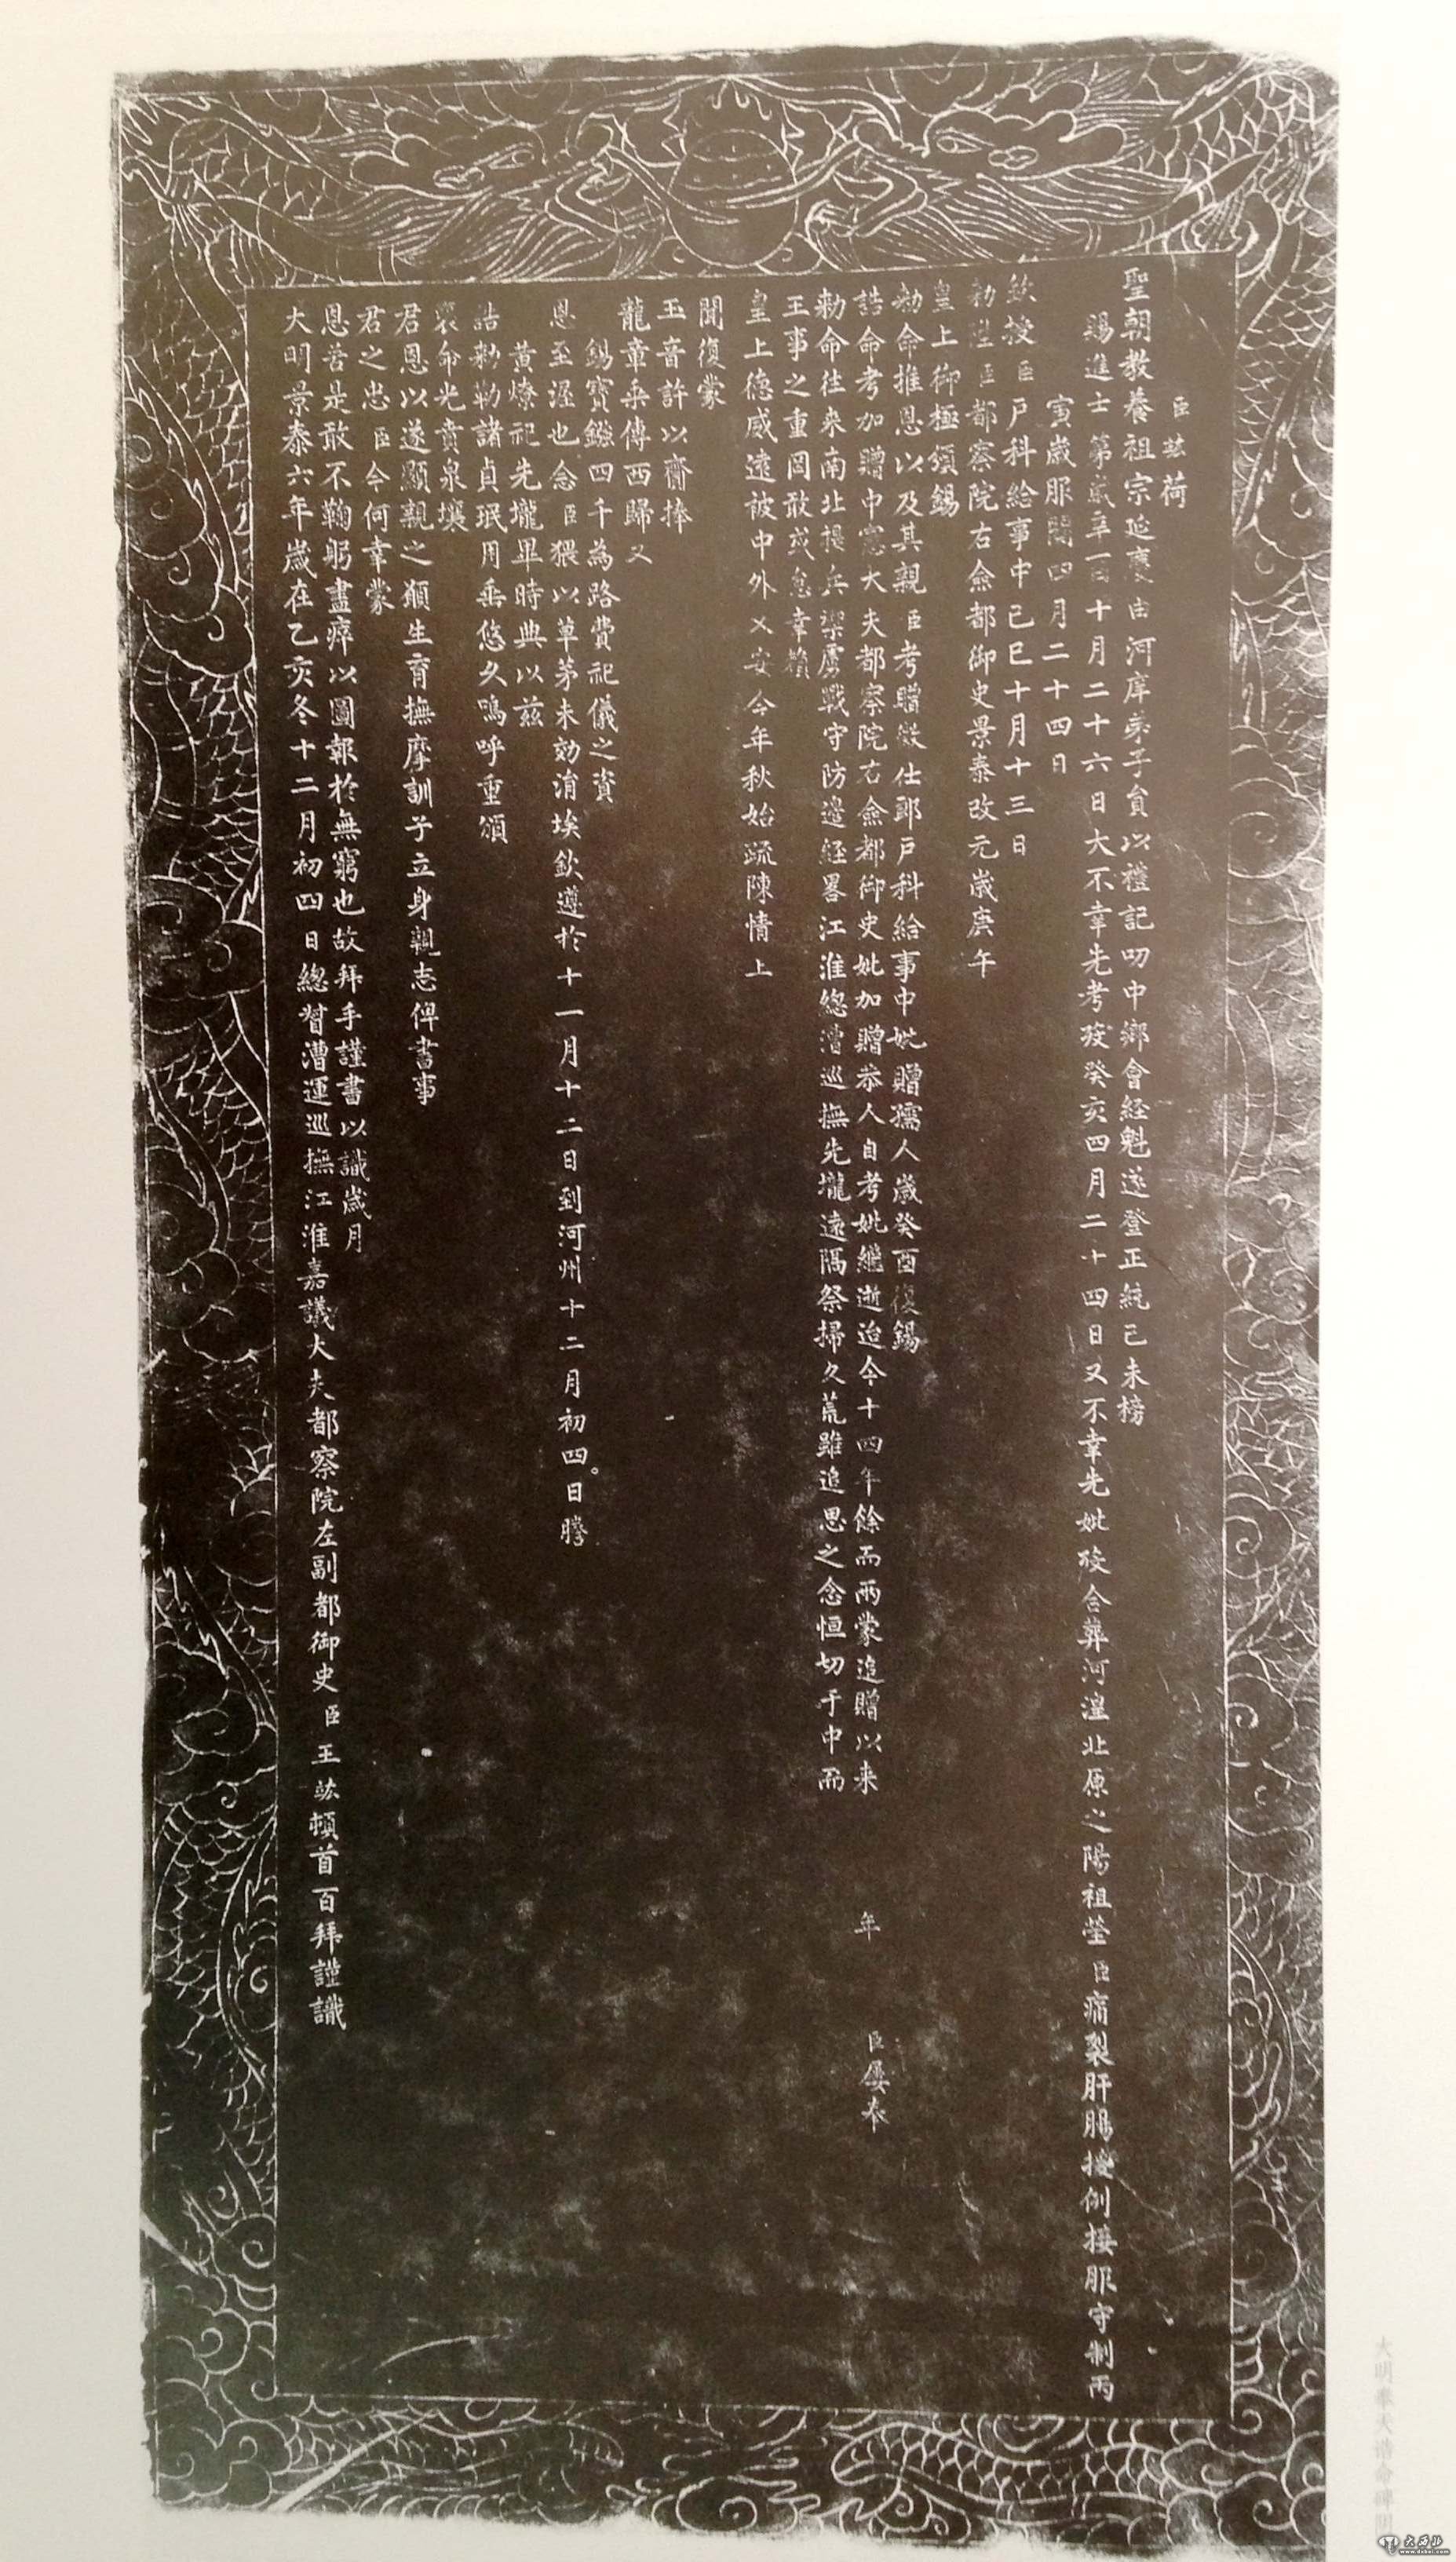 臣竑荷
聖朝教養祖宗延慶由河庠弟子員以禮記叨中鄉會經魁遂登正統己未榜
賜進士第歲辛酉十月二十六日大不幸先考歿癸亥四月二十四日又不幸先妣歿合葬河湟北原之陽祖塋臣痛裂肝腸援例接服守制丙
寅歲服闋四月二十四日
欽授臣戶科給事中己巳十月十三日
勅陞臣都察院右僉都御史景泰改元歲庚午
皇上御極頒錫
勅命推恩以及其親臣考贈徵仕郎戶科給事中妣贈孺人歲癸酉復錫
誥命考加贈中憲大夫都察院右僉都御史妣加贈恭人自考妣繼逝迨今十四年餘而兩蒙追贈以來 年 臣屢奉
勅命往來南北提兵禦虜戰守防邊經畧江淮總漕巡撫先壠遠隔祭掃久荒雖追思之念恒切于中而
王事之重罔敢或怠幸賴
皇上德威遠被中外乂安今年秋始疏陳情上
聞復蒙
玉音許以齎捧
龍章乘傳西歸又
錫寶鏹四千為路費祀儀之資
恩至渥也念臣猥以草茅未効涓埃欽遵於十一月十二日到河州十二月初四日謄
黃燎祀先壠畢時典以茲
誥勅勒諸貞珉用垂悠久嗚呼重頒
褒命光賁泉壤
君恩以遂顯親之願生育撫摩訓子立身親志俾書事
君之忠臣今何幸蒙
恩若是敢不鞠躬盡瘁以圖報於無窮也故拜手謹書以識歲月
大明景泰六年歲在乙亥冬十二月初四日總督漕運巡撫江淮嘉議大夫都察院左副都御史臣王竑頓首百拜謹識
大明奉天誥命碑阴
大西北
www.dxbei.com